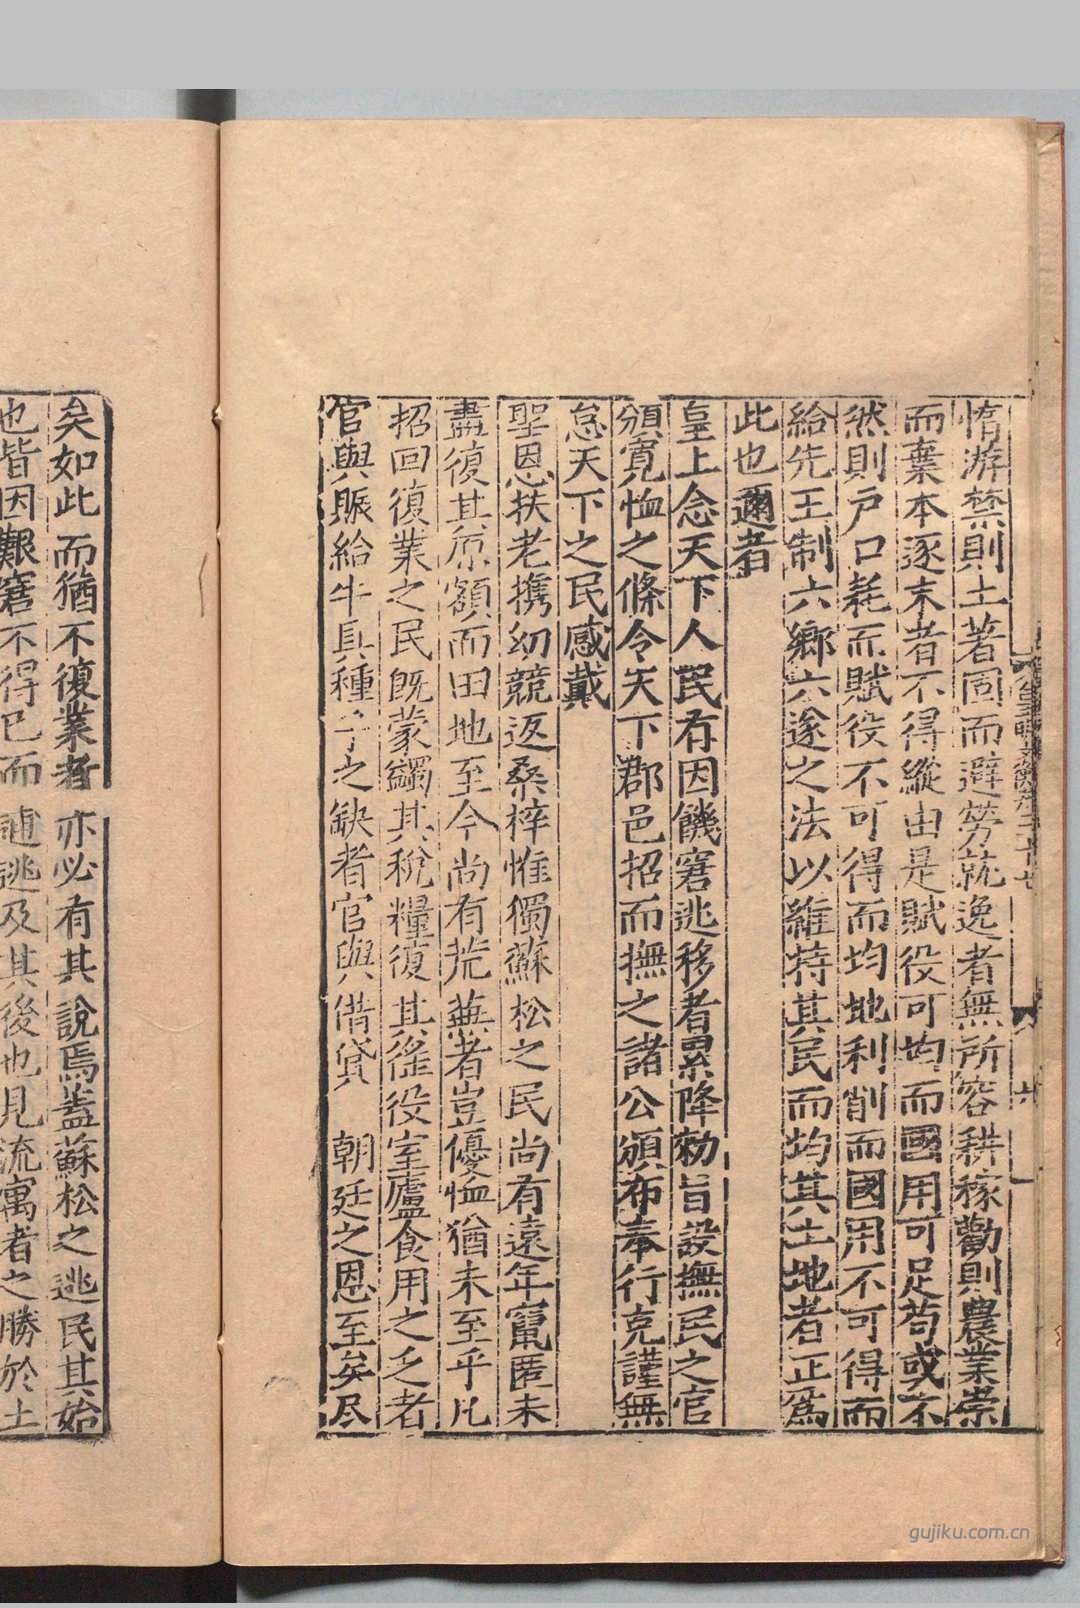 惰游禁則土著固而避勞就逸者無所容耕稼勸則農業崇
而棄本逐末者不得縱由是賦役可均而國用可足苟或不
然則戶口耗而賦役不可得而均地利削而國用不可得而
給先王制六鄉六遂之法以維持其民而均其土地者正為
此也邇者
皇上念天下人民有因饑窘逃移者累降勑旨設撫民之官
頒寬恤之條令天下郡邑招而撫之諸公頒布奉行克謹無
怠天下之民感戴
聖恩扶老携幼競返桑梓惟獨蘇松之民尚有遠年竄匿未
盡復其原額而田地至今尚有荒蕪者豈優恤猶未至乎凡
招回復業之民既蒙蠲其稅糧復其徭役室廬食用之乏者
官與賑給牛具種子之缺者官與借貸 朝廷之恩至矣尽
矣如此而猶不復業者亦必有其說焉盖蘇松之逃民其始
也皆因艱窘不得已而逋逃及其後也見流寓者之勝於土
gujiku.com.cn